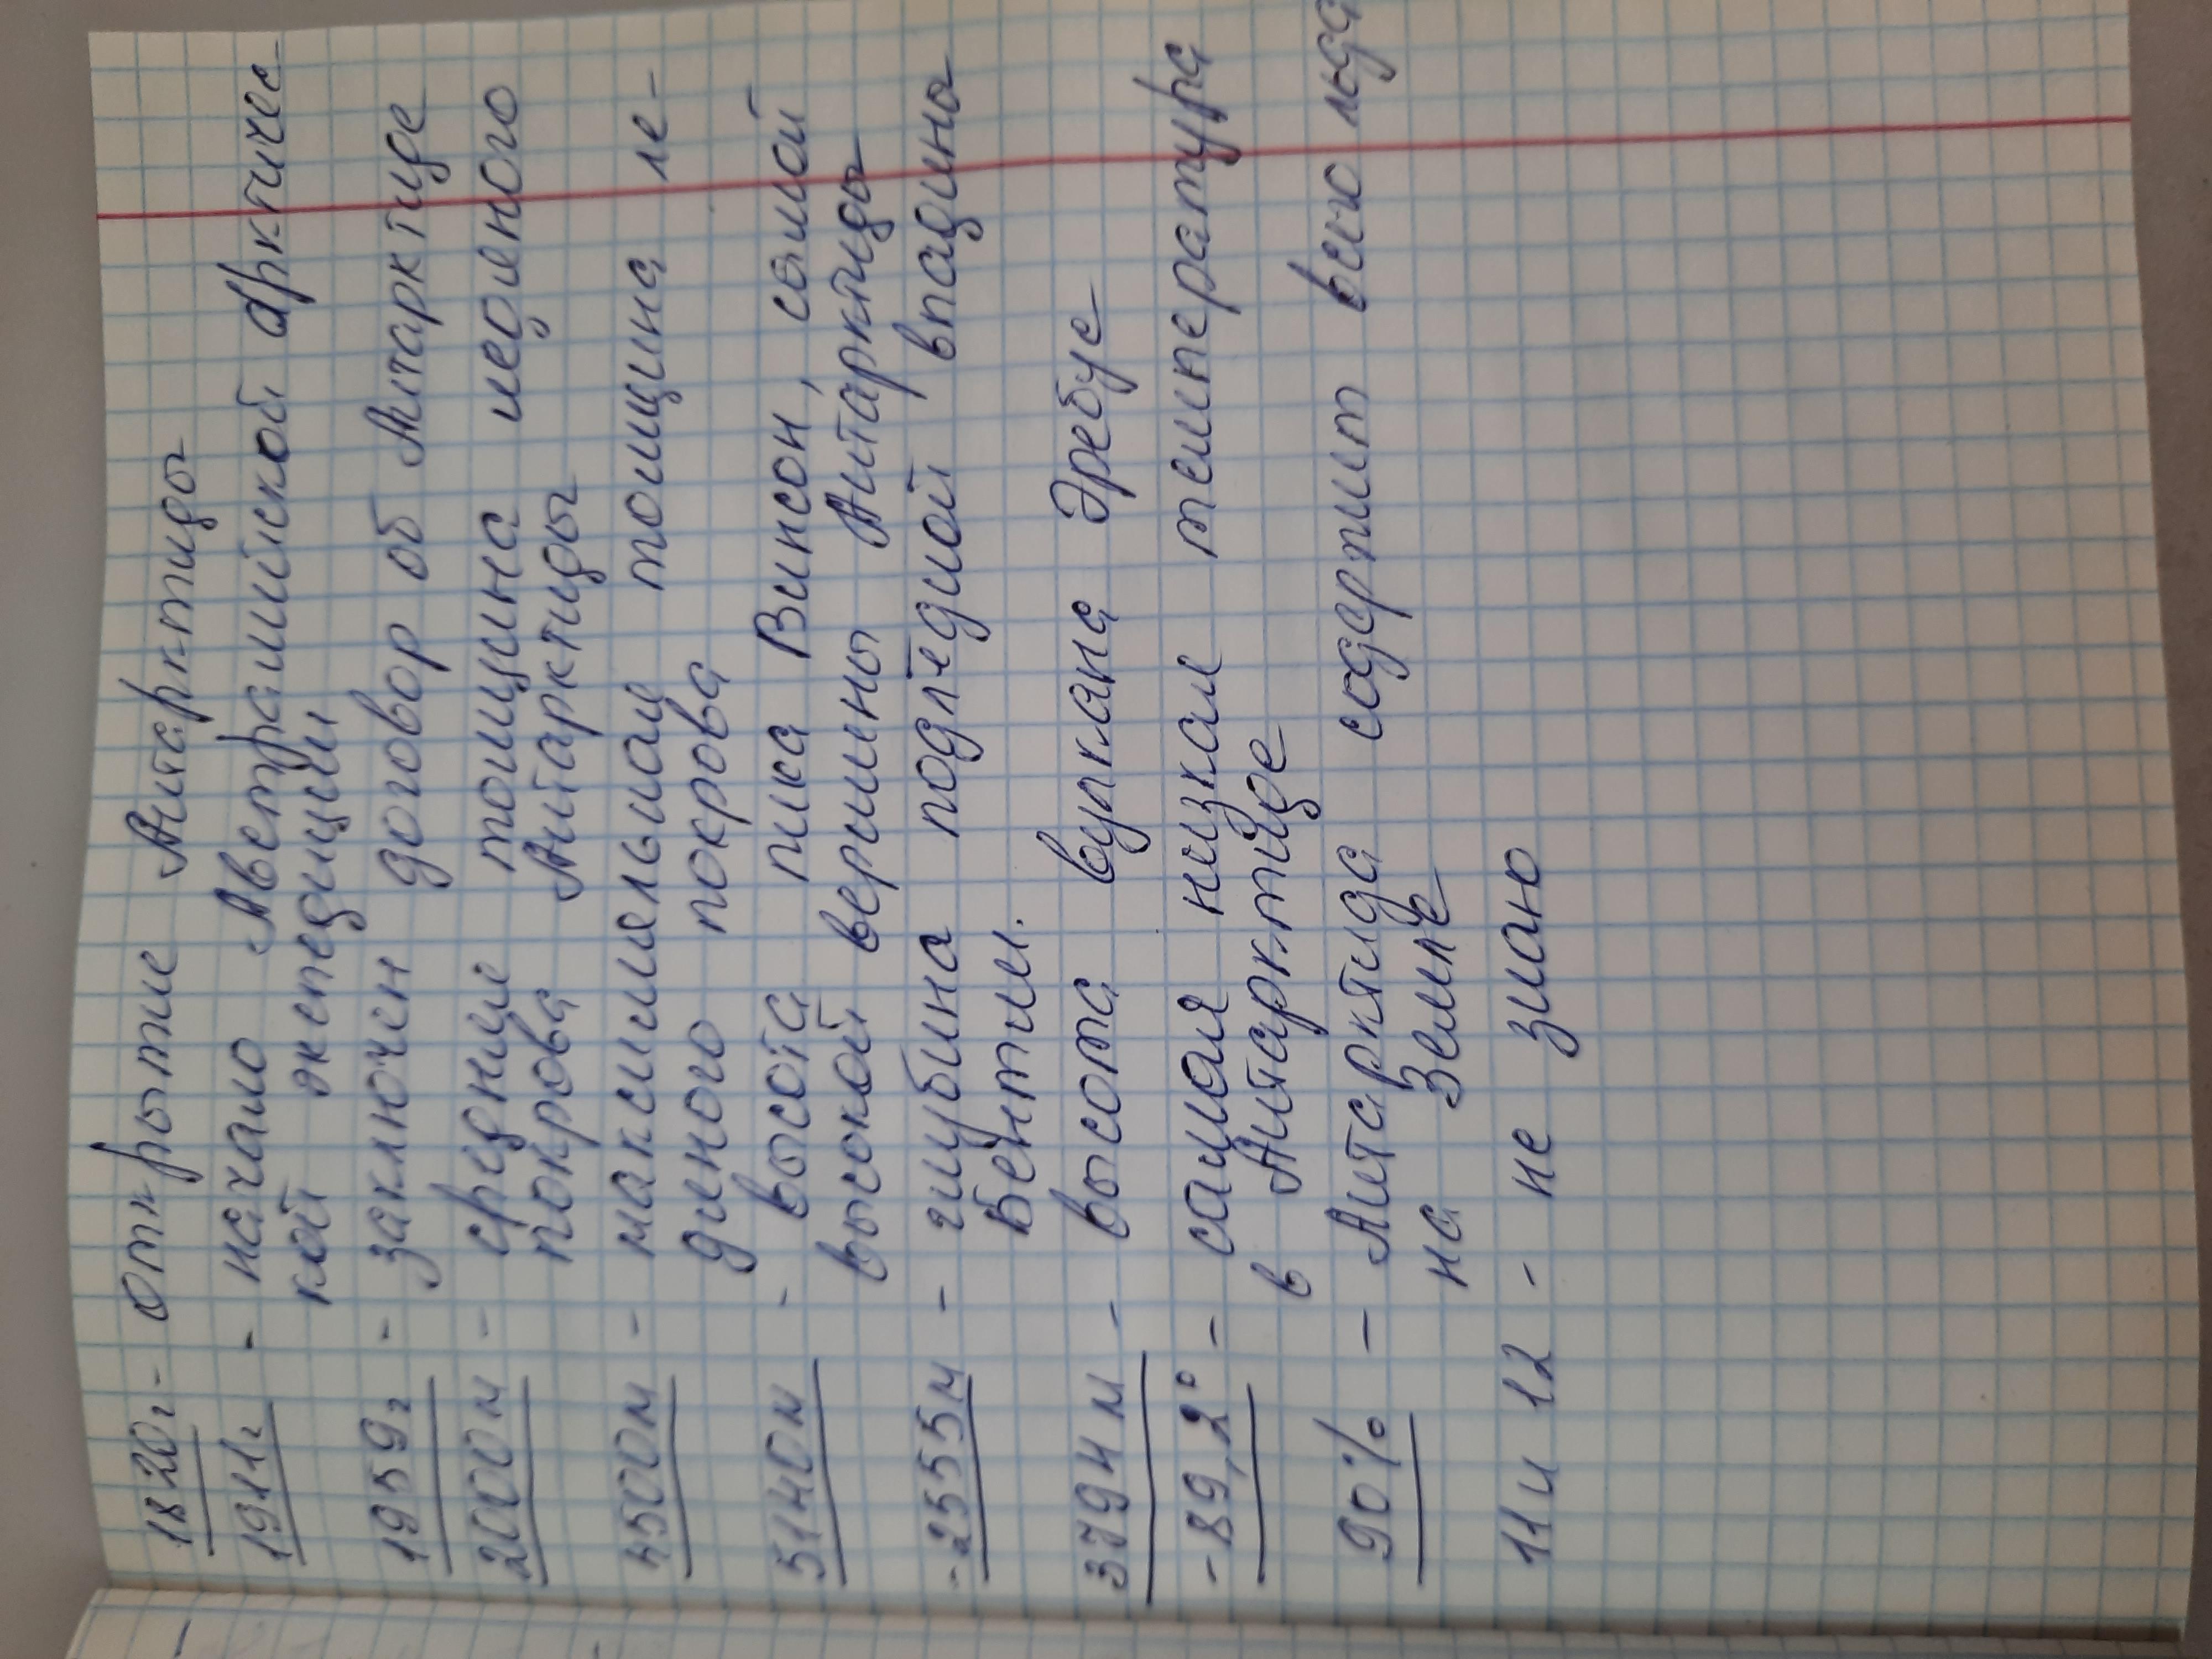 1820г- открытие Антарктиды
1911г - начало Австралийской Арктичес-
кой экспедиции
1959г - заключен договор об Антарктиде
2000м - средняя толщина ледяного
покрова Антарктиды
4500м - максимальная толщина ле-
дяного покрова
5140м - высота пика Винсон, самой
высокой вершины Антарктиды
-2555м - глубина подлёдной впадины
Бентли.
3794м - высота вулкана Эребус
-89,2° - самая низкая температура
в Антарктиде
90% - Антарктида содержит всего льда
на Земле
11 и 12 - не знаю